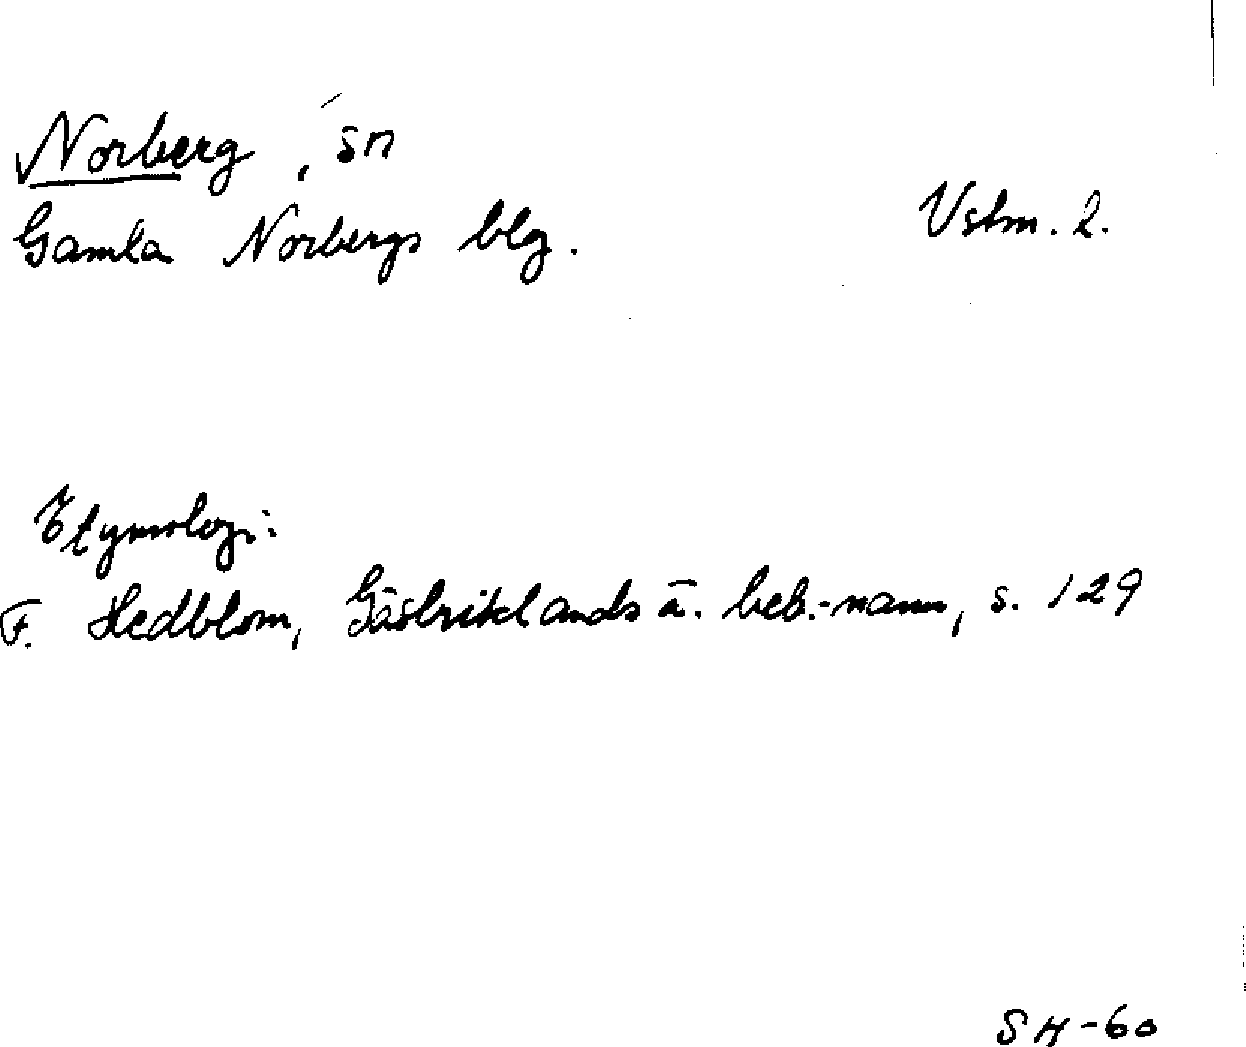 Norberg, sn
Gamla Norbergs blg. Vstm. l.
Etymologi:
F. Hedblom, Gästriklands ä. beb.-namn, s. 129
SH-60